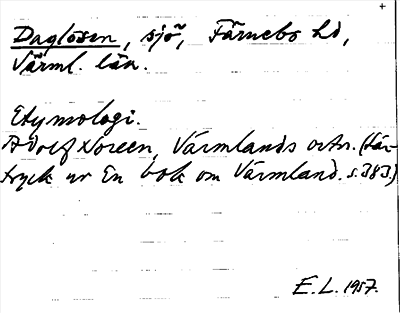 +
Daglösen, sjö, Färnebo hd,
Värml. län.
Etymologi.
Adolf Noreen, Värmlands ortn. (Sär-
tryck ur En bok om Värmland. s. 383.)
E.L. 1957.